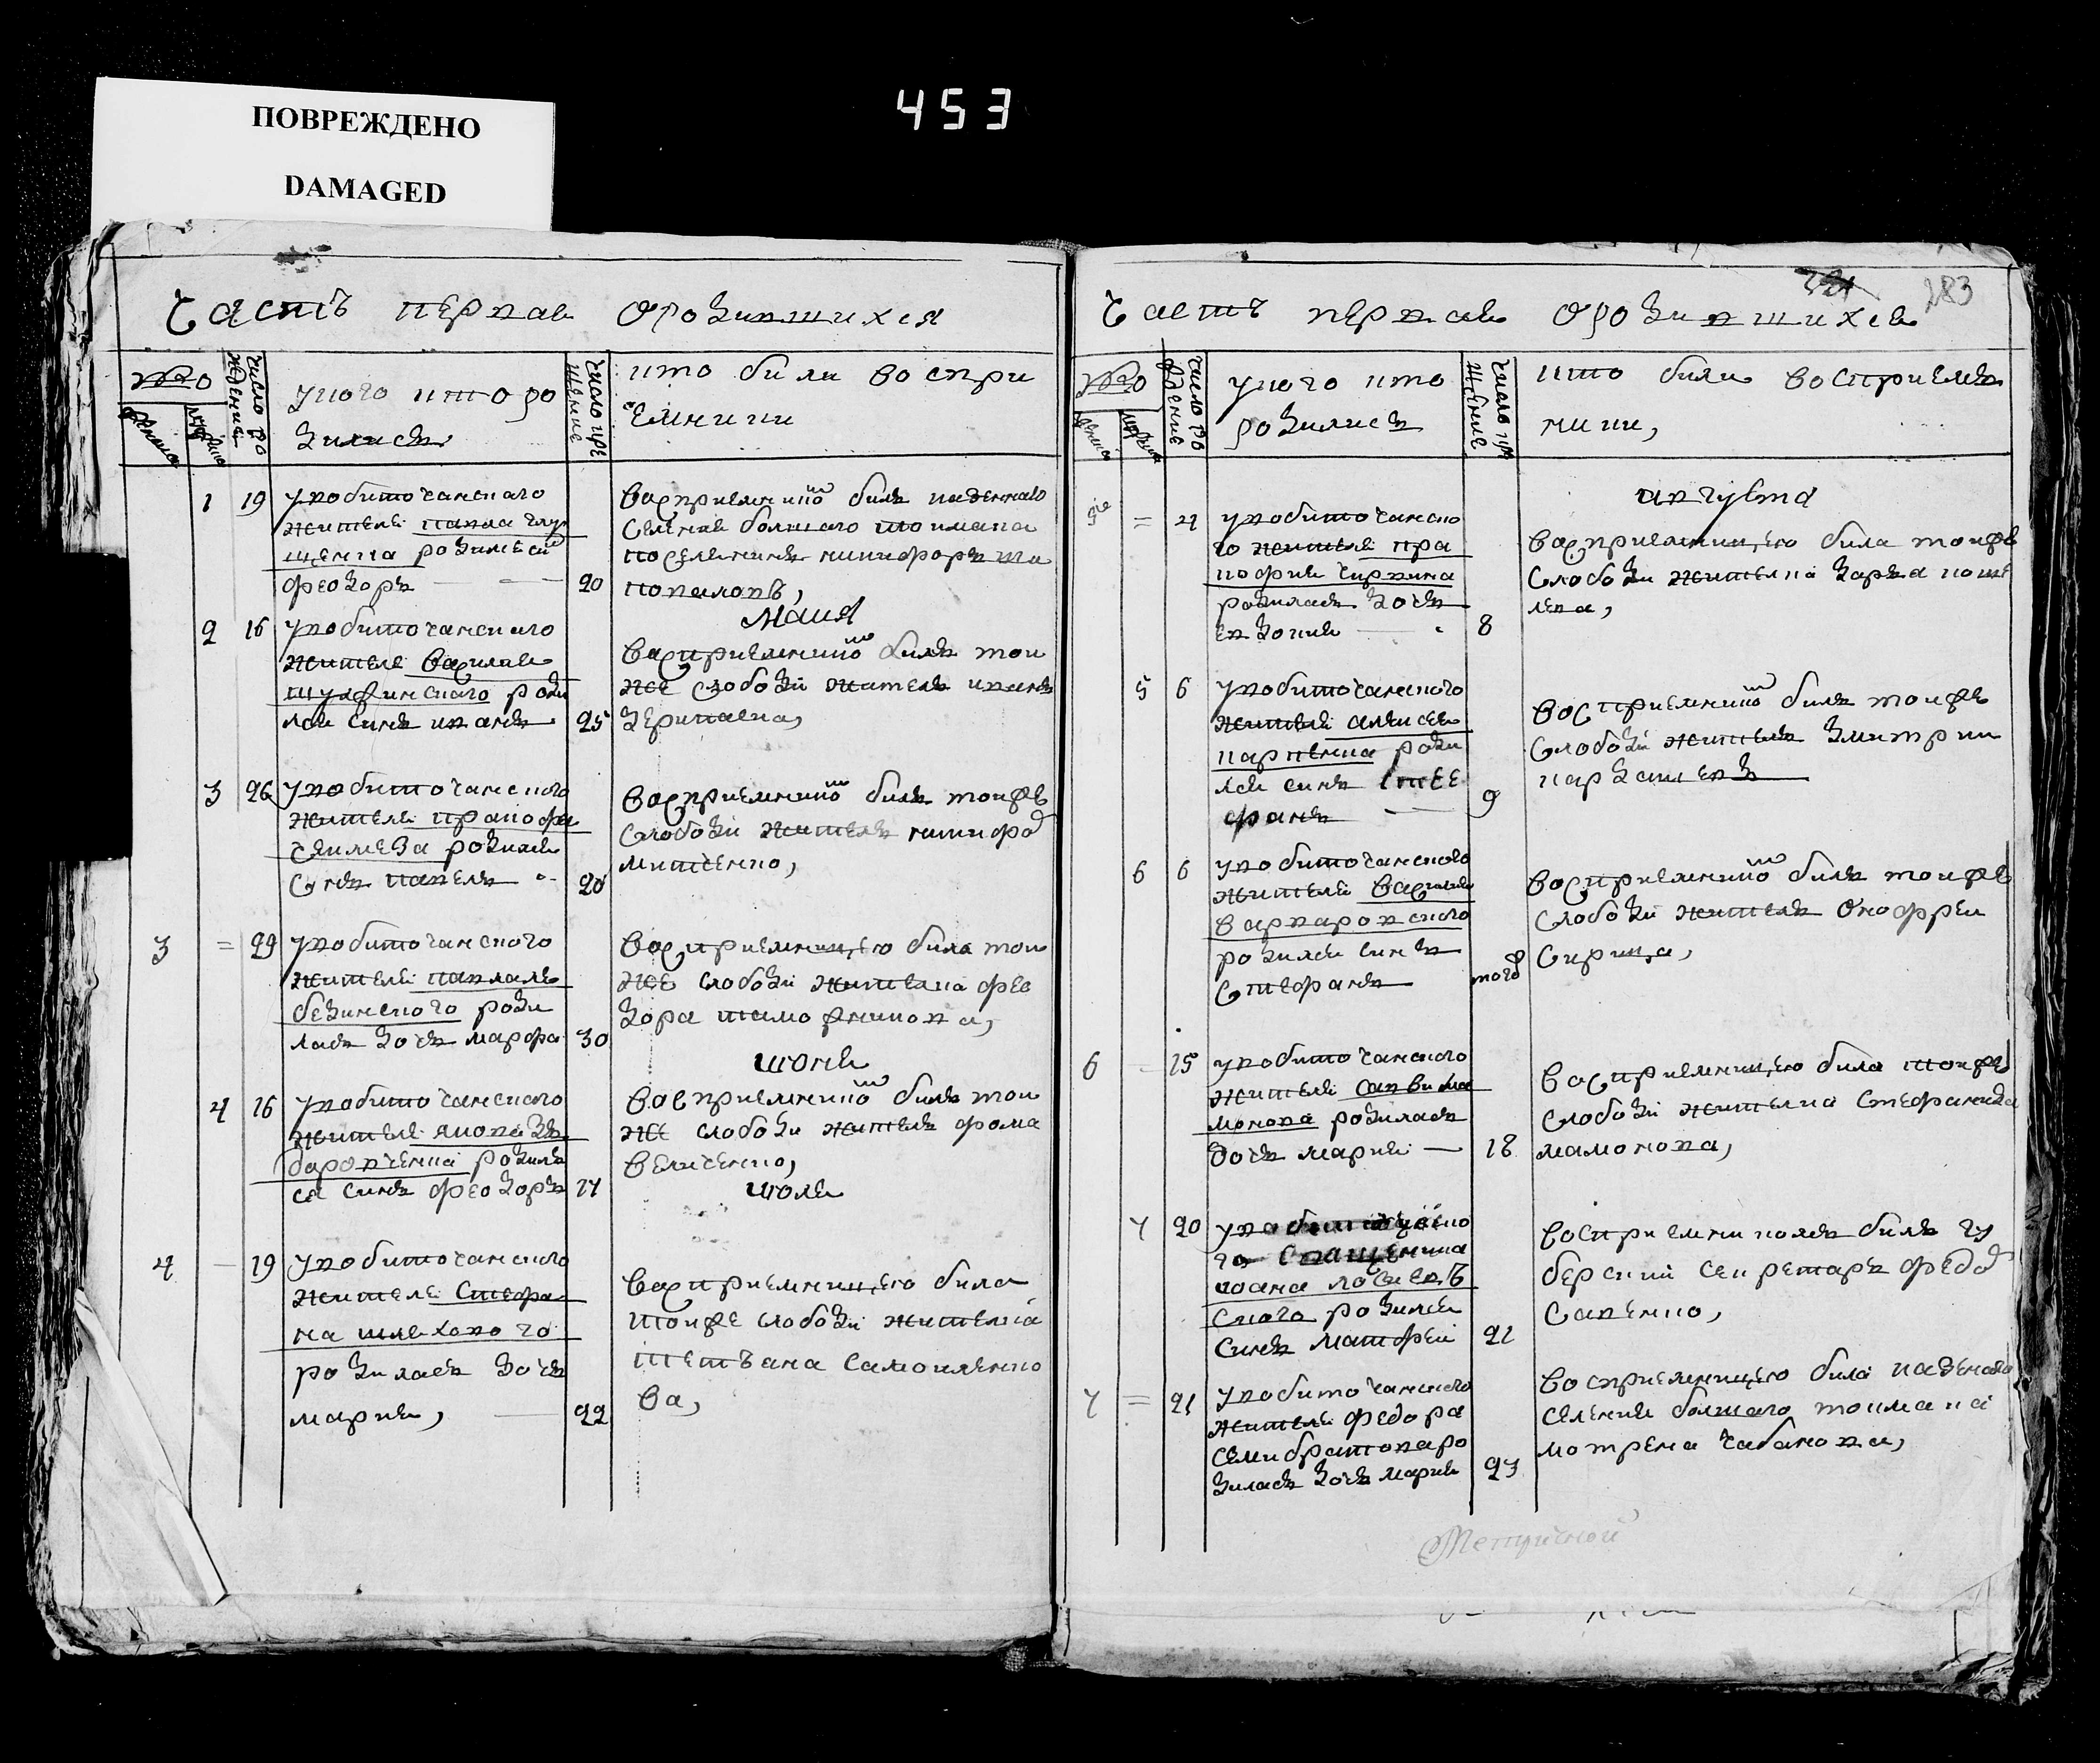 ПОВРЕЖДЕНО
DAMAGED
453
283
Часть первая о родившихся
№о
число рождения
у кого кто ро
дились
число кре
щение
кто били воспри
емники
1 19 у кобиточанского
жителя павла глу
щенка родился
феодоръ 20
восприемникомъ билъ казенного
селения болшаго токмака
поселенинъ никифоръ ша
повалова,
маия
2 16 у кобиточанского
жителя василия
шулжинского роди
лся синъ иванъ 25
восприемникомъ билъ той
же слободи житель иванъ
деркаченко,
3 26 у кобиточанского
жителя прокофия
родился
синъ павелъ 28
восприемникомъ билъ тойже
слободи житель никифоръ
митченко,
3 = 29 у кобиточанского
жителя павла ле
бединского роди
лась дочь марфа 30
восприемницею била той
же слободи жителка фео
дора
июня
4 16 у кобиточанского
жителя якова
родил
ся синъ феодоръ 17
восприемникомъ билъ той
же слободи житель фома
величенко,
июля
4 19 у кобиточанского
жителя стефа
на шляхового
родилась дочь
мария, 22
восприемницею била
тойже слободи жителка
татьяна самойленко
ва,
Часть первая о родившихся
№о
число рождение
у кого кто
родились
число кре
щение
кто били восприем
ники,
августа
5 = 4 у кобиточанско
го жителя про
кофия чиркина
родилась дочь
евдокия 8
восприемницею била тойже
слободи жителка даръя коше
лева,
5 6 у кобиточанского
жителя алексея
карпенка роди
лся синъ сте
фанъ 9
восприемникомъ билъ тойже
слободи житель дмитрий
кардашевъ
6 6 у кобиточанского
жителя василия
варваровского
родился синъ
стефанъ тогож
восприемникомъ билъ тойже
слободи житель онофрей
сирица,
6 15 у кобиточанского
жителя савви ма
монова родилась
дочь мария 18
восприемницею била тойже
слободи жителка стефанида
мамонова,
7 20
священика
иоана
ского родился
синъ матфей 21
восприемникомъ билъ гу
бернский секретаръ федоръ
савенко,
7 = 21 у кобиточанского
жителя федора
семибратова ро
дилась дочь мария 23
восприемницею била казеного
селения болшаго токмака
мотрена чабанова,
Метричной